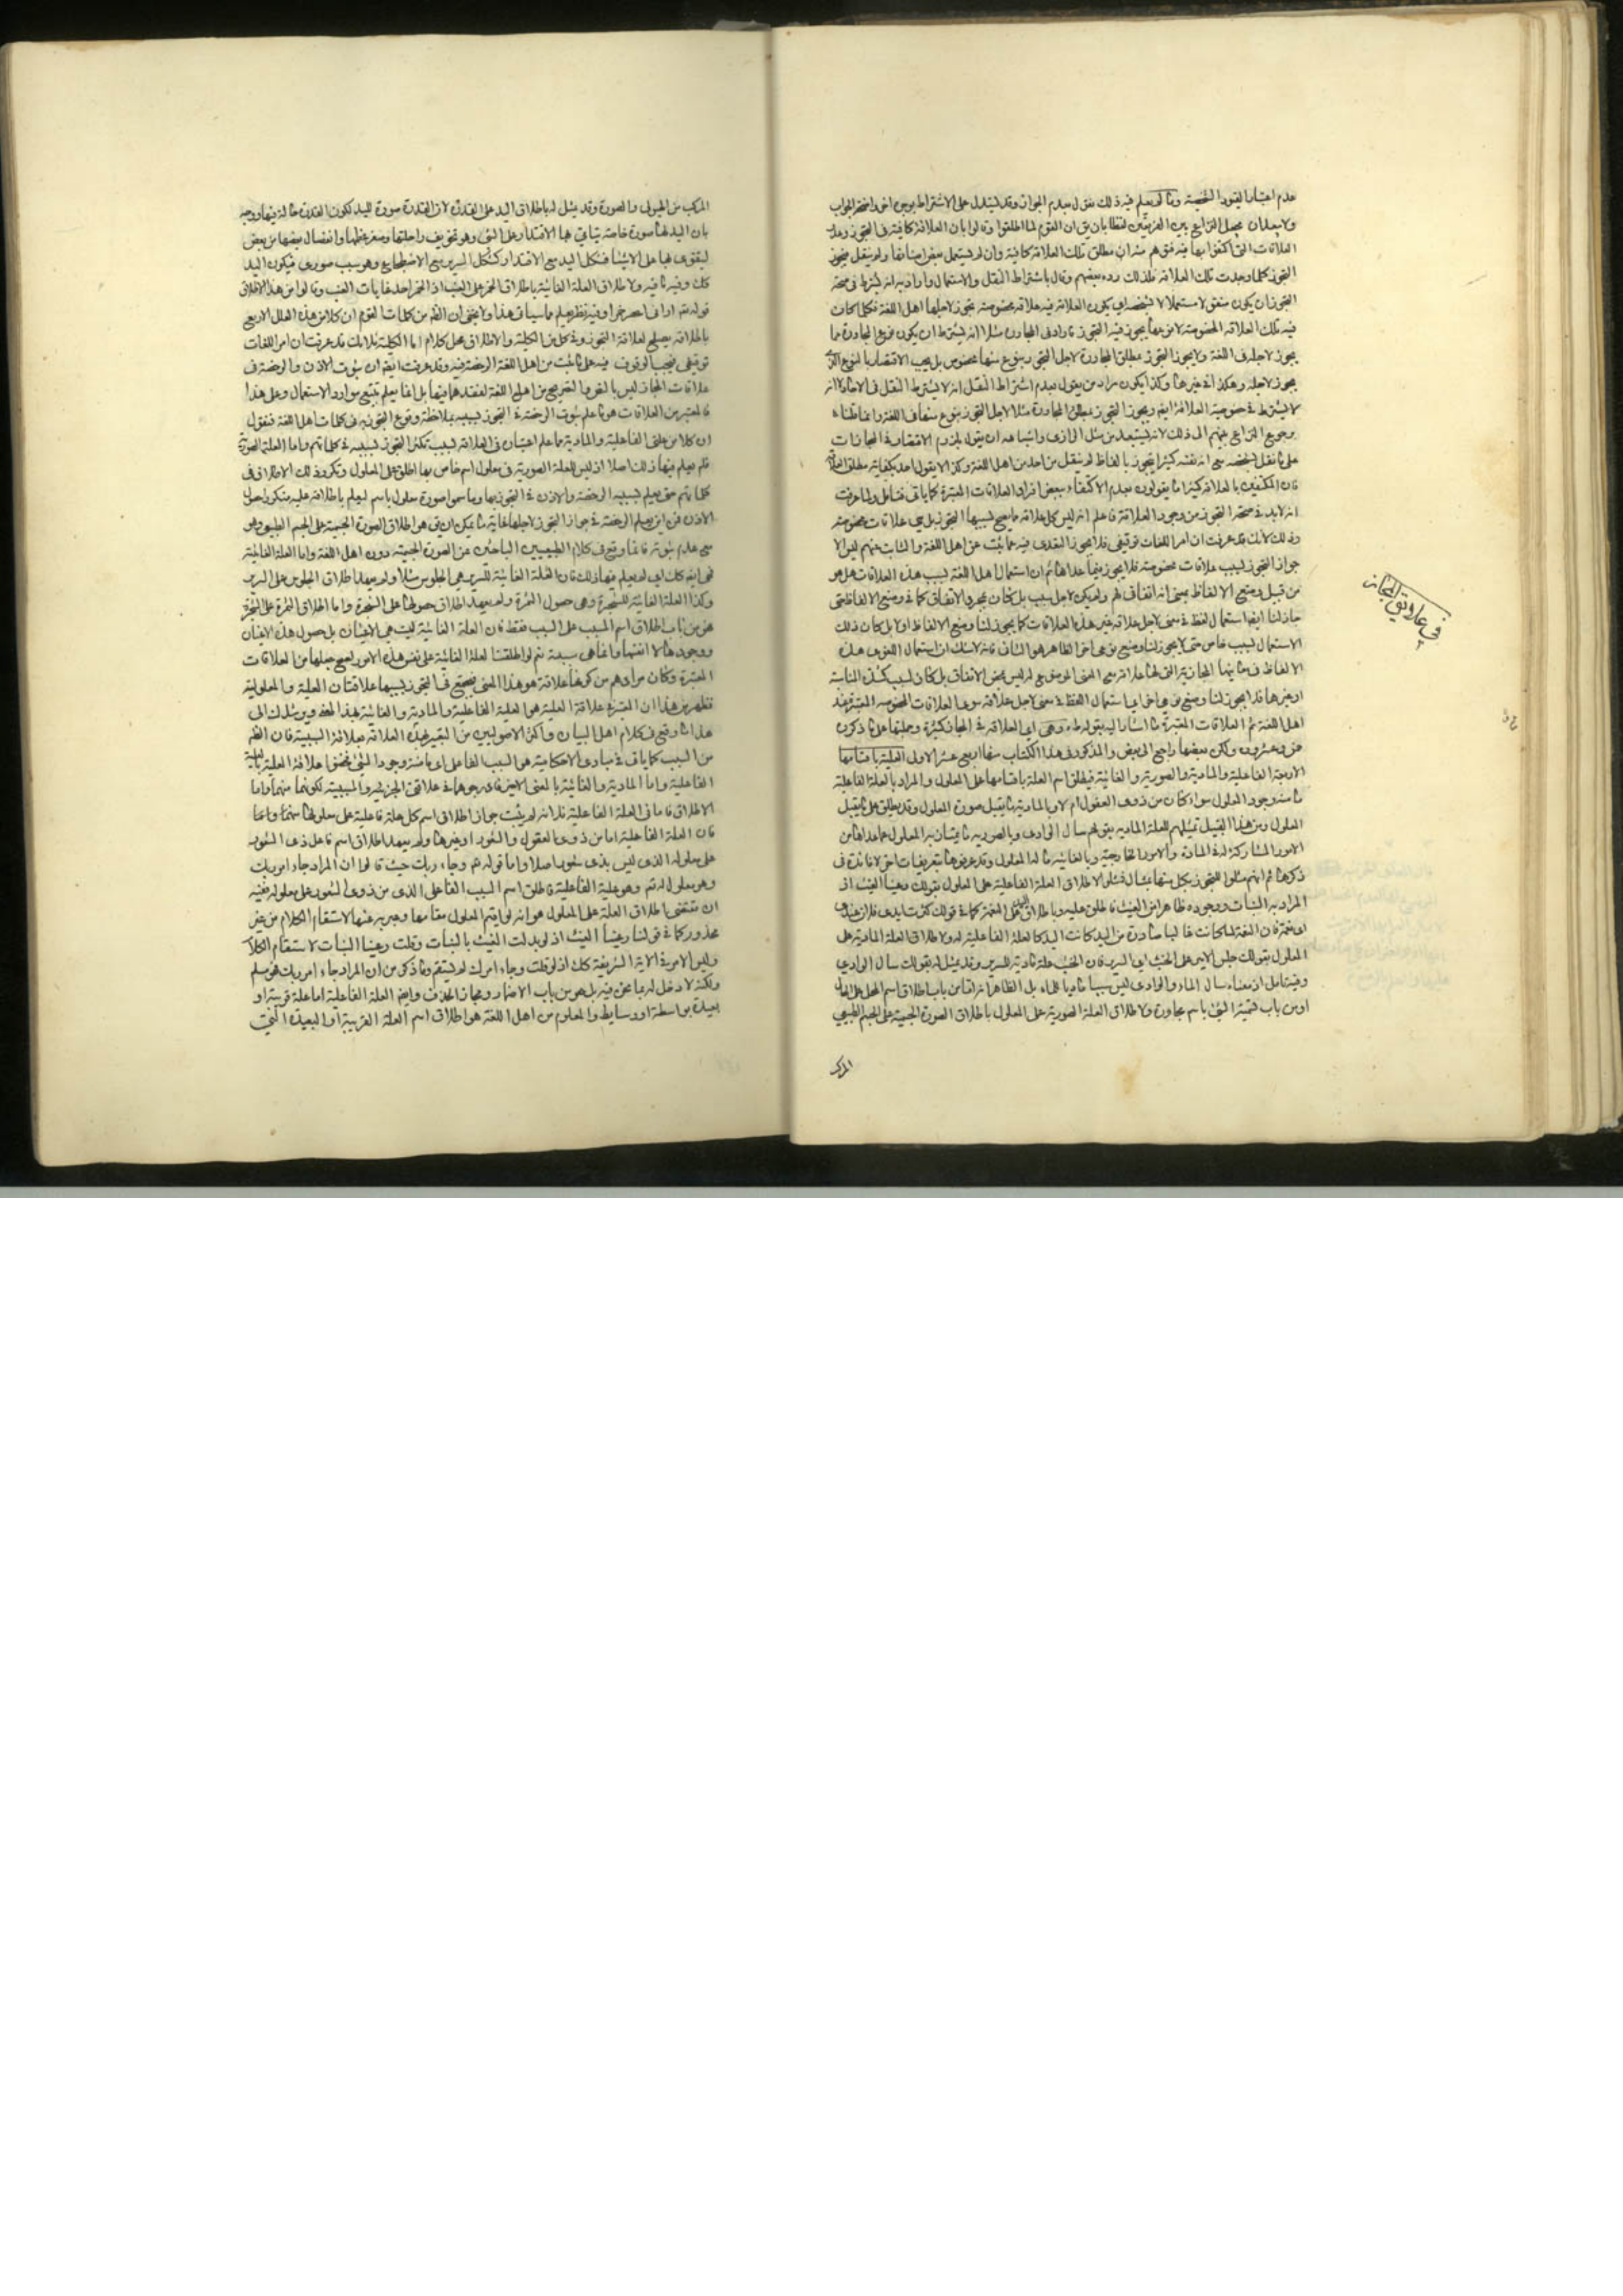 عدم اعتبار القيود الشخصية وما لم يعلم فيه ذلك نقول بعدم الجواز وقد يستدل على الاشتراط بوجه اخر
ولا يبعد ان يجعل النزاع بين الفريقين لفظيا بان يق ان القوم لما اطلقوا وقالوا بان العلاقة كافية في التجوز
العلاقات التي اكتفوا بها فيه
التجوز كلما وجدت تلك العلاقة فلذلك رده بعضهم وقال باشتراط النقل والاستعمال واراد به انه يشترط في صحة
التجوز ان يكون
فيه تلك العلاقة المخصوصة لا نوعها يجوز فيه التجوز
يجوز لاجله في اللغة ولا يجوز التجوز بمطلق المجاورة لاجل التجوز بنوع منها مخصوص بل يجب الاقتصار بالنوع الذي
يجوز لاجله وهكذا في غيرها وكذا يكون مراد من يقول بعدم اشتراط النقل انه لا يشترط النقل في الاحاد
لا يشترط في خصوصية العلاقة
ورجوع النزاع بينهم الى ذلك لانه يستبعد من مثل الرازي واتباعه ان يقول بلزوم الاقتصار في المجازات
على ما نقل بشخصه مع انه نفسه كثيرا يتجوز بالفاظ لم ينقل من احد من اهل اللغة وكذا لا يقول احد بكفاية مطلق
فان المكتفين بالعلاقة كثيرا ما يقولون بعدم الاكتفاء ببعض افراد العلاقات المعتبرة كما ياتي فتامل ولما عرفت
انه لا بد في صحة التجوز من وجود العلاقة فاعلم انه ليس كل علاقة ما يصح بسببها التجوز بل هي علاقات مخصوصة
وذلك لانك قد عرفت ان امر اللغات توقيفي فلا يجوز التعدي فيه عما ثبت عن اهل اللغة والثابت عنهم ليس الا
جواز التجوز بسبب علاقات مخصوصة فلا يجوز فيما عداها ثم ان استعمال اهل اللغة بسبب هذه العلاقات هل هو
من قبيل وضع الالفاظ بمعنى انه اتفاقي لهم ولم يكن لاجل سبب بل كان بمجرد الاتفاق كما في وضع الالفاظ حتى
جاز لنا ايضا استعمال لفظ في معنى لاجل علاقة غير هذه العلاقات كما يجوز لنا وضع الالفاظ او لا بل كان ذلك
الاستعمال لسبب خاص حتى لا يجوز لنا وضع نوعي اخر الظاهر هو الثاني فانه لا شك ان استعمال اللغوي هذه
الالفاظ في معانيها المجازية التي لها علاقة مع المعنى الموضوع له ليس بمحض الاتفاق بل كان لسبب كشدة المناسبة
او غيرها فلا يجوز لنا وضع نوعي اخر اي استعمال اللفظ في معنى لاجل علاقة سوى العلاقات المخصوصة المعتبرة عند
اهل اللغة ثم العلاقات المعتبرة ما اشار اليه بقوله وهي اي العلاقة في المجاز كثيرة وجملتها على ما ذكروه
خمس وعشرون ولكن بعضها راجع الى بعض والمذكور في هذا الكتاب منها اربع عشر الاول العلية باقسامها
الاربعة الفاعلية والمادية والصورية والغائية فيطلق اسم العلة باقسامها على المعلول والمراد بالعلة الفاعلية
ما منه وجود المعلول سواء كان من ذوي العقول ام لا وبالمادية ما يقبل صورة المعلول وقد يطلق على ما يقبل
المعلول ومن هذا القبيل تمثيلهم للعلة المادية بقولهم سال الوادي وبالصورية ما يمتاز به المعلول عما عداها من
الامور المشاركة له في المادة والامور الخارجية وبالغائية ما له المعلول وقد عرفوها بتعريفات اخر لا فائدة في
ذكرها ثم انهم مثلوا للتجوز بكل منها بمثال فمثلوا لاطلاق العلة الفاعلية على المعلول بقولك رعينا الغيث اذ
المراد به النبات ووجوده ظاهرا من الغيث فاطلق عليه وباطلاق اليد على النعمة كما في قولك كثرت ايدي فلان عندي
اي نعمته فان النعمة لما كانت غالبا صادرة من اليد كانت اليد كالعلة الفاعلية له ولاطلاق العلة المادية على
المعلول بقولك جلس الامير على الخشب اي السرير فان الخشب علة مادية للسرير وقد يمثل له بقولك سال الوادي
وفيه تامل اذ معناه سال الماء والوادي ليس سببا ماديا للماء بل الظاهر انه اما من باب اطلاق اسم المحل على الحال
او من باب تسمية الشيء باسم مجاوره ولاطلاق العلة الصورية على المعلول باطلاق الصورة الجسمية على الجسم الطبيعي
المركب
في علائق المجاز
المركب من الهيولى والصورة وقد يمثل له باطلاق اليد على القدرة لان القدرة صورة لليد لكون القدرة حالة فيها
بان اليد لها صورة خاصة يتاتى بها الاقتدار على الشيء وهو تجويف راحتها وصغر عظمها وانفصال بعضها من بعض
ليقوى بها على الاشياء فشكل اليد مع الاقتدار كشكل السرير مع الاضطجاع وهو سبب صوري فيكون اليد
كك وفيه ما فيه ولاطلاق العلة الغائية باطلاق الخمر على العنب اذ الخمر احد غايات العنب وقالوا من هذا الاطلاق
قوله تع اراني اعصر خمرا وفيه نظر يعلم مما سياتي هذا ولا يخفى ان الظ من كلمات القوم ان كلا من هذه العلل الاربع
باطلاقه يصلح لعلاقة التجوز وفي كل من الكلية والاطلاق محل كلام اما الكلية فلانك قد عرفت ان امر اللغات
توقيفي فيجب الوقوف فيه على ما ثبت من اهل اللغة الرخصة فيه وقد عرفت ايضا ان ثبوت الاذن والرخصة في
علاقات المجاز ليس بالنص والتصريح من اهل اللغة لفقدهما فيها بل انما يعلم بتتبع موارد الاستعمال وعلى هذا
فالمعتبر من العلاقات هو ما علم ثبوت الرخصة في التجوز بسببه بملاحظة وقوع التجوز به في كلمات اهل اللغة فنقول
ان كلا من علتي الفاعلية والمادية مما علم اعتباره في العلاقة بسبب تكثر التجوز بسببه في كلماتهم واما العلة الصورية
فلم يعلم فيها ذلك اصلا اذ ليس للعلة الصورية في معلول اسم خاص بها اطلق على المعلول وتكرر ذلك الاطلاق في
كلماتهم حتى يعلم بسببه الرخصة والاذن في التجوز بها وما سموا صورة معلول باسم ليعلم باطلاقه عليه
الاذن فمن اين يعلم الرخصة في جواز التجوز لاجلها غاية ما يمكن ان يق هو اطلاق الصورة الجسمية على الجسم الطبيعي وهو
مع عدم ثبوته فانما وقع في كلام الطبيعيين الباحثين عن الصورة الجسمية دون اهل اللغة واما العلة الغائية
فهي ايضا كك اي لم يعلم فيها ذلك فان العلة الغائية للسرير هي الجلوس مثلا ولم يعهد اطلاق الجلوس على السرير
وكذا العلة الغائية للشجرة وهي حصول الثمرة ولم يعهد اطلاق حصولها على الشجرة واما اطلاق الثمرة على الشجرة
فهو من باب اطلاق اسم المسبب على السبب فقط فان العلة الغائية ليست هي الاعيان بل حصول هذه الاعيان
ووجودها لا انفسها نعم لو اطلقنا العلة الغائية على نفس هذه الامور لصح جعلها من العلاقات
المعتبرة وكان مرادهم من كونها علاقة هو هذا المعنى فيجتمع في التجوز بسببها علاقتان العلية والمعلولية
فظهر من هذا ان المعتبر في علاقة العلية هو العلية الفاعلية والمادية والغائية بهذا المعنى ويرشدك الى
هذا ما وقع في كلام اهل البيان واكثر الاصوليين من التعبير عن هذه العلاقة بعلاقة السببية فان الظ
من السبب كما ياتي في مبادي الاحكامية هو السبب الفاعلي اي ما منه وجود الشيء
الفاعلية واما المادية والغائية بالمعنى الاخير فادرجوهما في علاقتي الجزئية والمسببية لكونهما منهما واما
الاطلاق فاما في العلة الفاعلية فلانه لم يثبت جواز اطلاق اسم كل علة فاعلية على معلولها
فان العلة الفاعلية اما من ذوي العقول والشعور او غيرها ولم يعهد اطلاق اسم فاعل ذي الشعور
على معلوله الذي ليس بذي شعور اصلا واما قوله تع وجاء ربك حيث قالوا ان المراد جاء امر ربك
وهو معلول له تع وهو علية الفاعلية فاطلق اسم السبب الفاعلي الذي من ذوي الشعور على معلوله ففيه
ان مقتضى اطلاق العلة على المعلول هو انه لو اقيم المعلول مقامها وعبر به عنها لاستقام الكلام من غير
محذور كما في قولنا رعينا الغيث اذ لو بدلت الغيث بالنبات وقلت رعينا النبات لاستقام الكلام
وليس الامر في الاية الشريفة كك اذ لو قلت وجاء امرك لم يستقم وما ذكر من ان المراد جاء امر ربك فهو مسلم
ولكنه لا دخل له بما نحن فيه بل هو من باب الاضمار ومجاز الحذف وايضا العلة الفاعلية اما علة قريبة او
بعيدة بواسطة او وسايط والمعلوم من اهل اللغة هو اطلاق اسم العلة القريبة او البعيدة التي